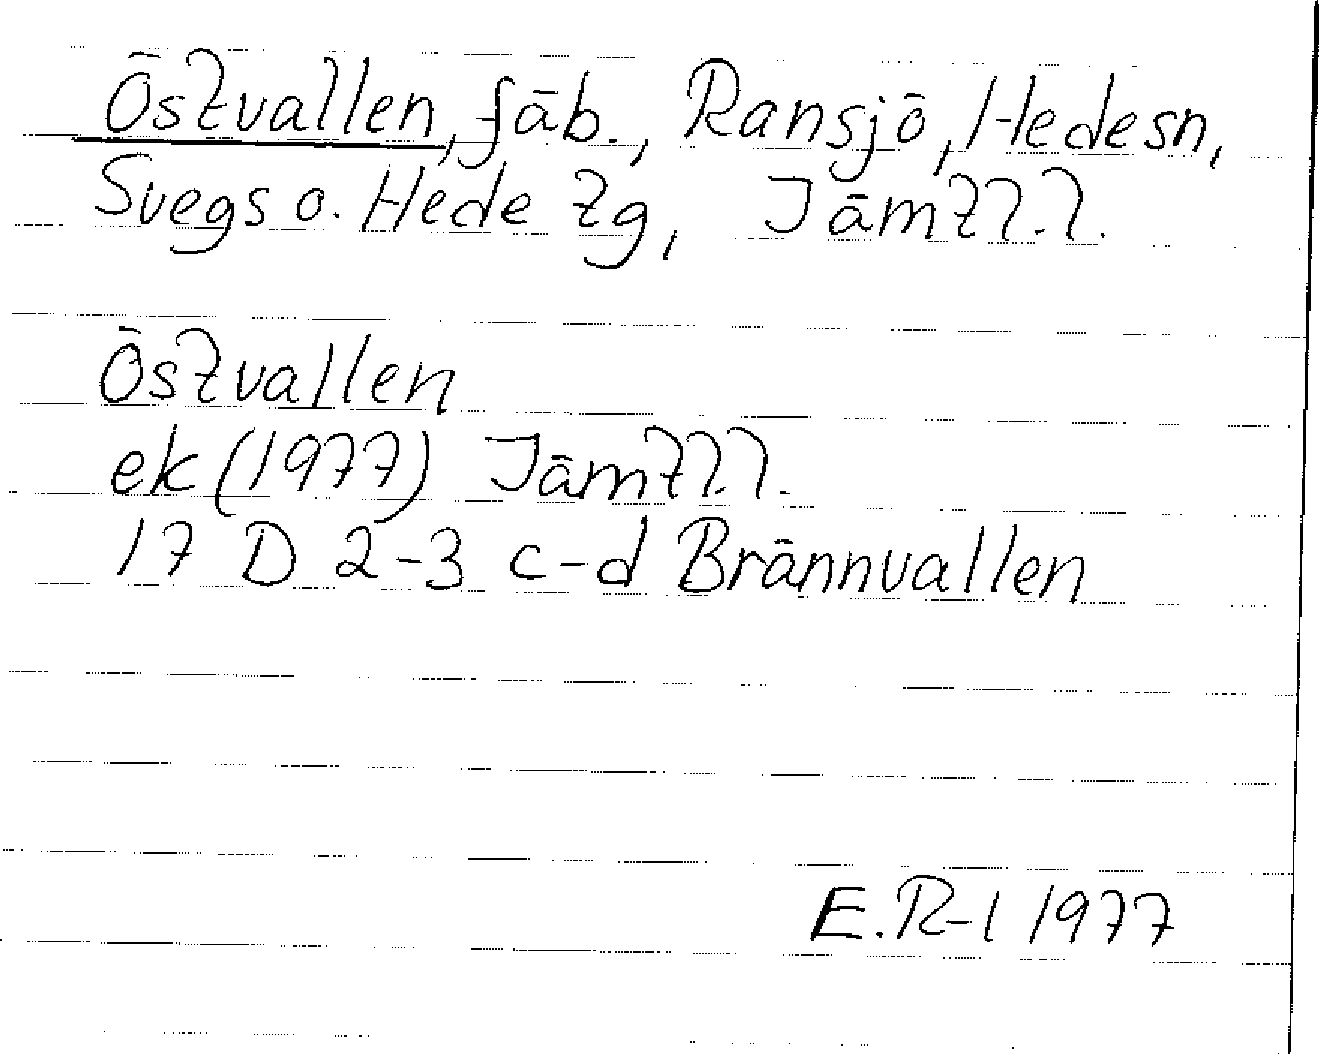 Östvallen, fäb., Ransjö, Hede sn,
Svegs o. Hede tg, Jämtl.l.
Östvallen
ek (1977) Jämtl.l.
17 D 2-3 c-d Brännvallen
E.R-l 1977